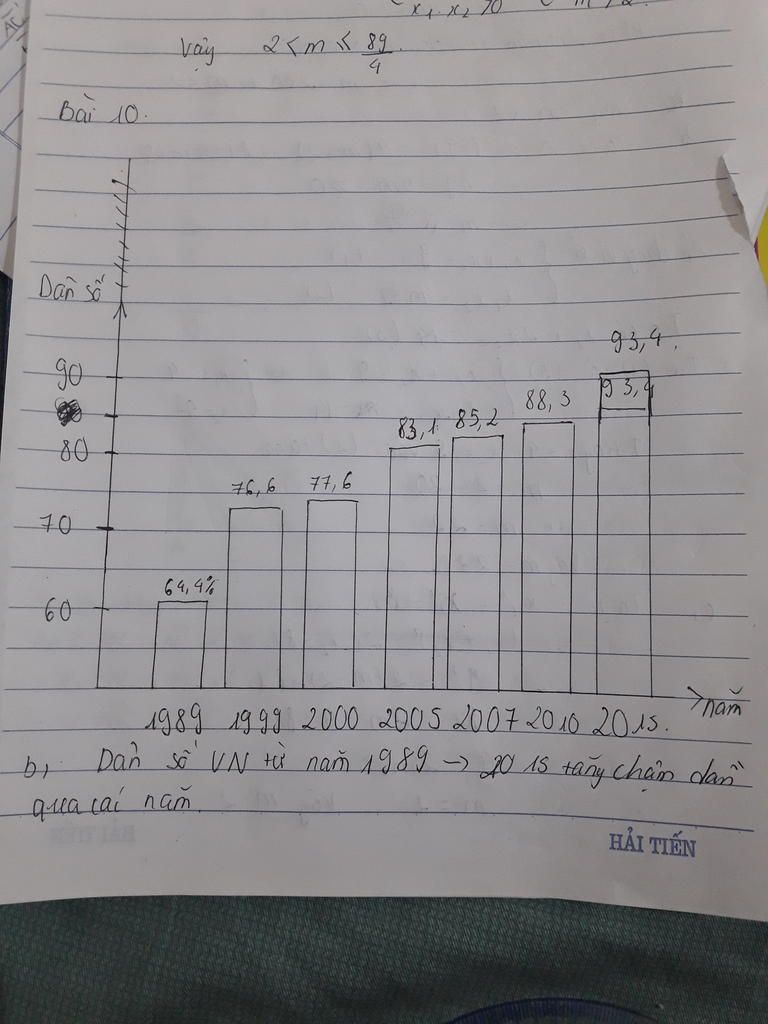 x₁. x₂ > 0
Vậy 2 < m ≤ 89/4.
Bài 10.
Dân số
93,4.
90
93,4
88,3
85,2
83,1
80
77,6
76,6
70
64,4%
60
năm
1989 1999 2000 2005 2007 2010 2015.
b, Dân số VN từ năm 1989 → 2015 tăng chậm dần
qua cái năm.
HẢI TIẾN